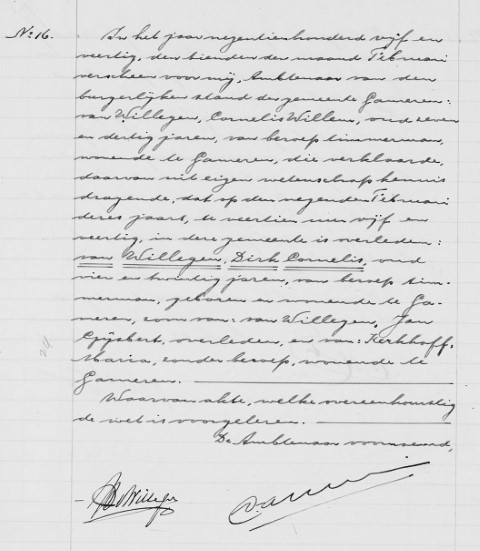 No. 16.
In het jaar negentienhonderd vijf en
veertig, den tienden der maand Februari
verscheen voor mij, Ambtenaar van den
burgerlijken stand der gemeente Gameren:
van Willegen, Cornelis Willem, oud zeven
en dertig jaren, van beroep timmerman,
wonende te Gameren, die verklaarde,
daarvan uit eigen wetenschap kennis
dragende, dat op den negenden Februari
dezes jaars, te veertien uur vijf en
veertig, in deze gemeente is overleden:
van Willegen, Dirk Cornelis, oud
vier en twintig jaren, van beroep tim-
merman, geboren en wonende te Ga-
meren, zoon van: van Willegen, Jan
Gijsbert, overleden, en van: Kerkhoff,
Maria, zonder beroep, wonende te
Gameren.
Waarvan akte, welke overeenkomstig
de wet is voorgelezen.
De Ambtenaar voornoemd,
v Willegen